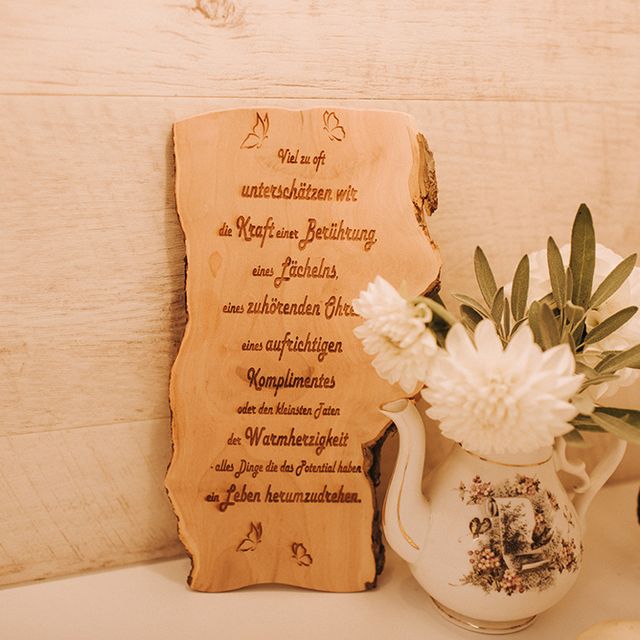 Viel zu oft
unterschätzen wir
die Kraft einer Berührung,
eines Lächelns,
eines zuhörenden Ohre
eines aufrichtigen
Komplimentes
oder den kleinsten Taten
der Warmherzigkeit
- alles Dinge die das Potential haben
ein Leben herumzudrehen.